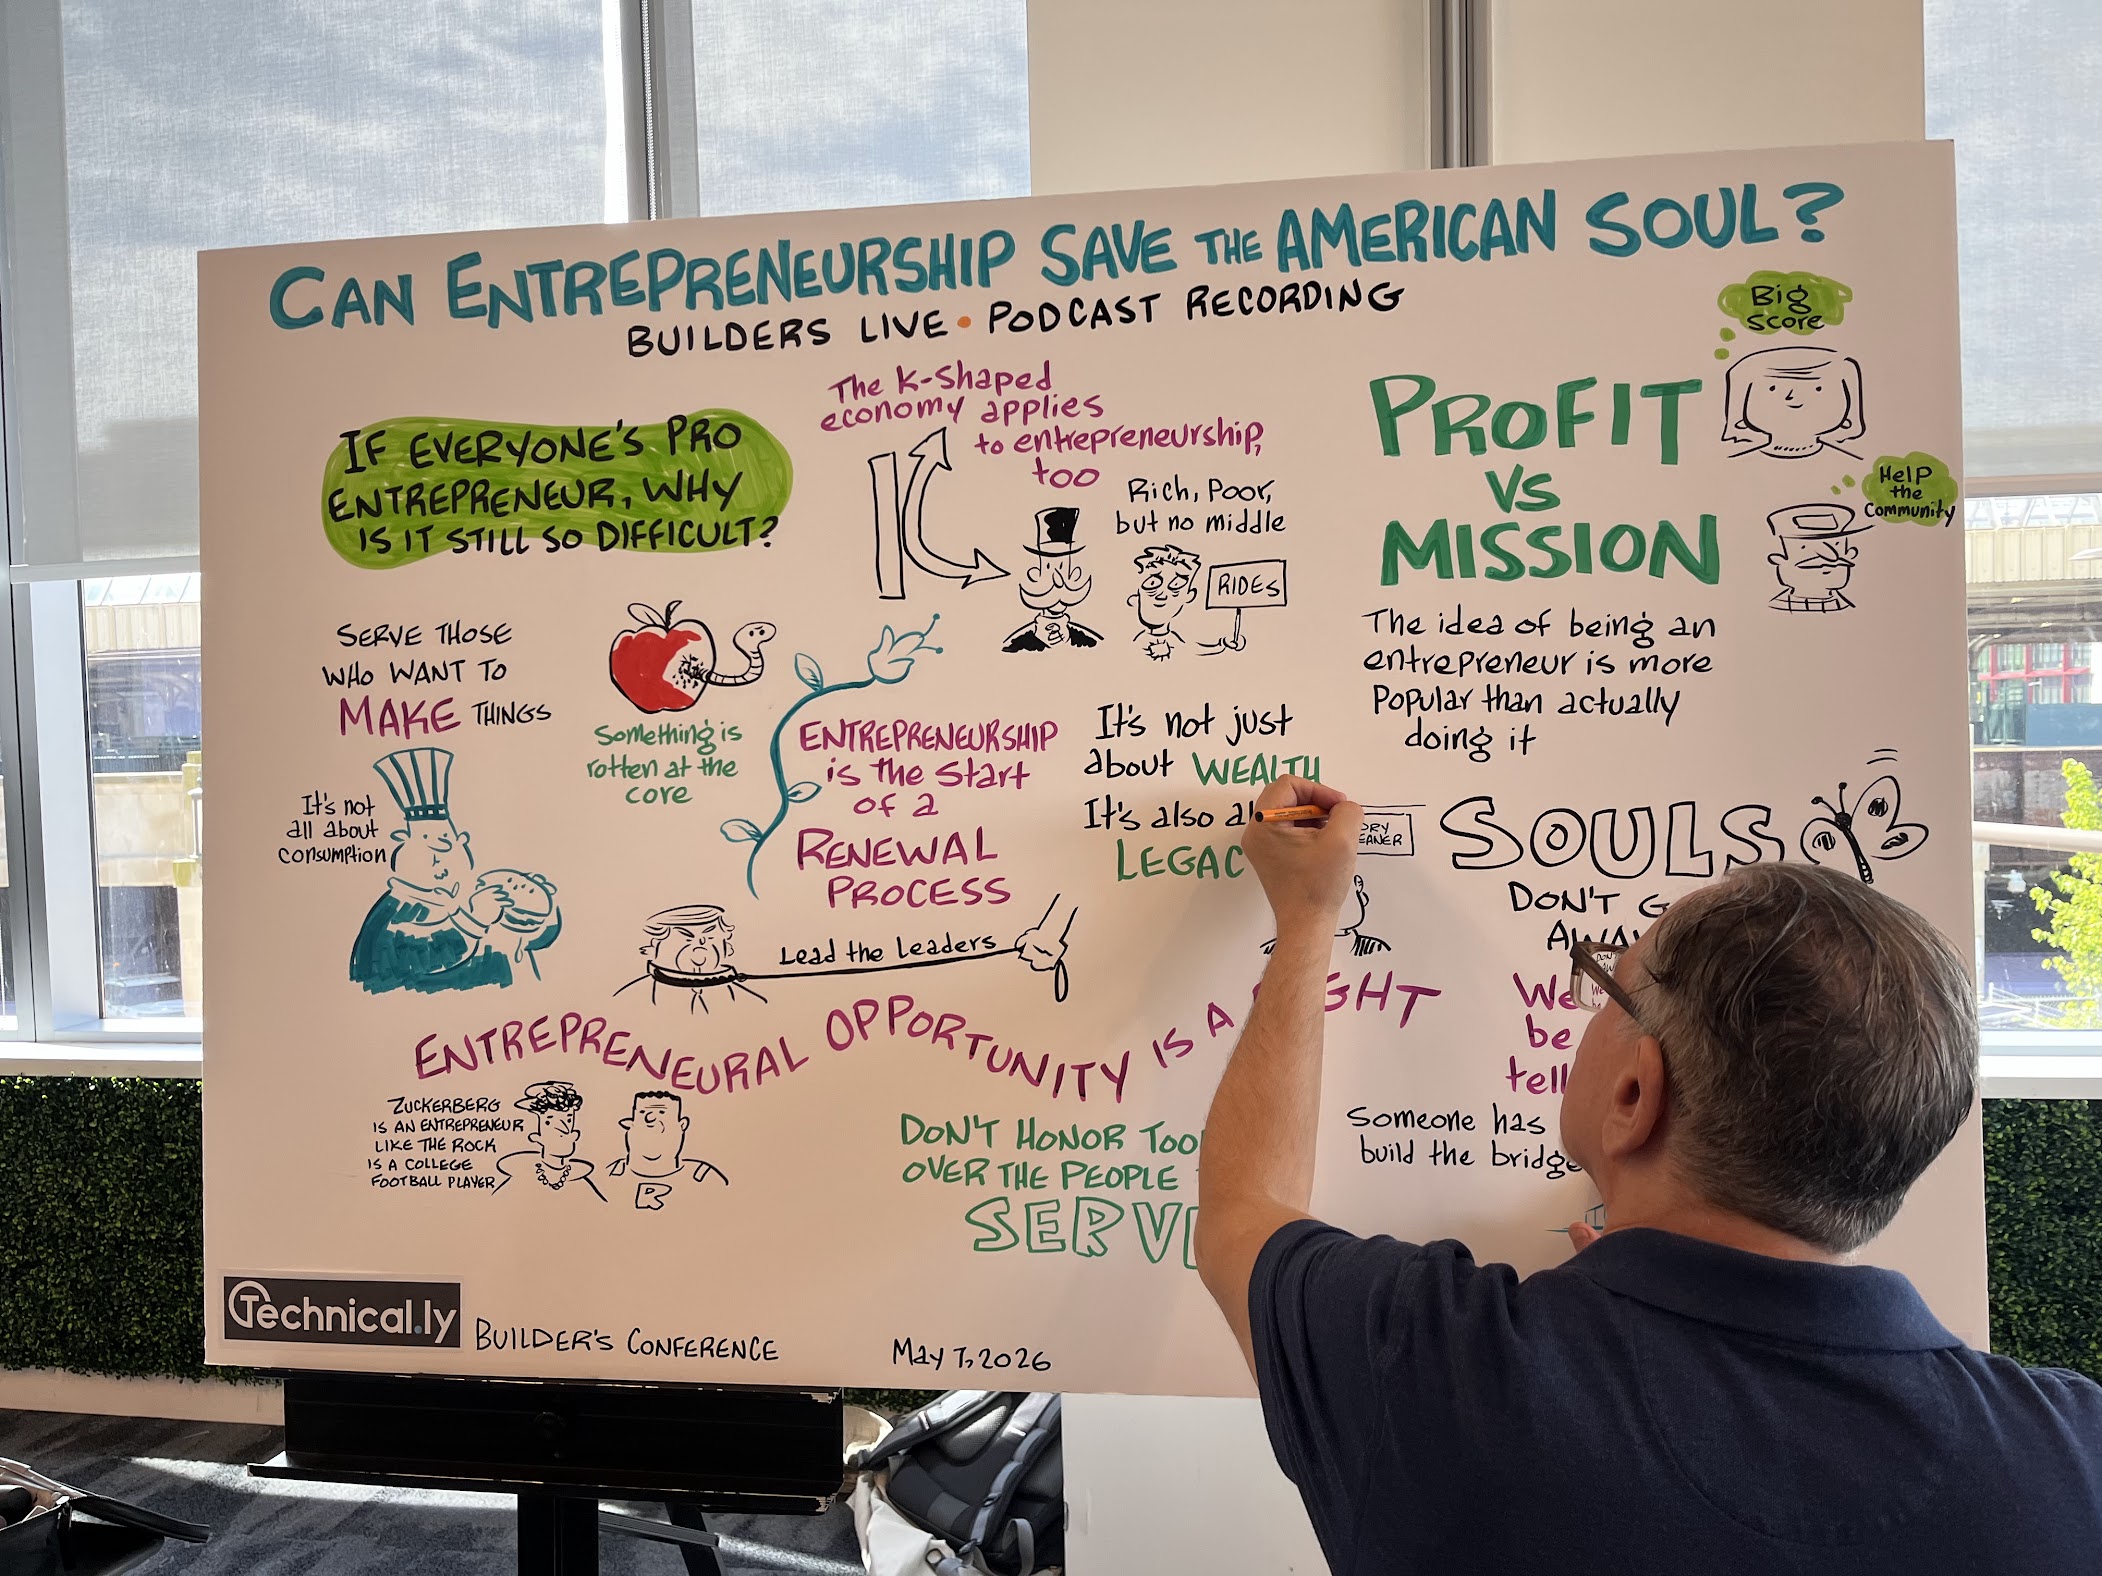 CAN ENTREPRENEURSHIP SAVE THE AMERICAN SOUL?
BUILDERS LIVE • PODCAST RECORDING
IF EVERYONE'S PRO
ENTREPRENEUR, WHY
IS IT STILL SO DIFFICULT?
The K-Shaped
economy applies
to entrepreneurship,
too
Rich, Poor,
but no middle
RIDES
PROFIT
VS
MISSION
Big
Score
Help
the
Community
The idea of being an
entrepreneur is more
Popular than actually
doing it
SERVE THOSE
WHO WANT TO
MAKE THINGS
It's not
all about
consumption
Something is
rotten at the
core
ENTREPRENEURSHIP
is the Start
of a
RENEWAL
PROCESS
It's not just
about WEALTH
It's also
LEGAC
SOULS
DON'T
Lead the Leaders
ENTREPRENEURAL OPPORTUNITY IS A
We
be
tell
Someone has
build the bridge
ZUCKERBERG
IS AN ENTREPRENEUR
LIKE THE ROCK
IS A COLLEGE
FOOTBALL PLAYER
R
DON'T HONOR
OVER THE PEOPLE
SERV
Technical.ly
BUILDER'S CONFERENCE
May 7, 2026